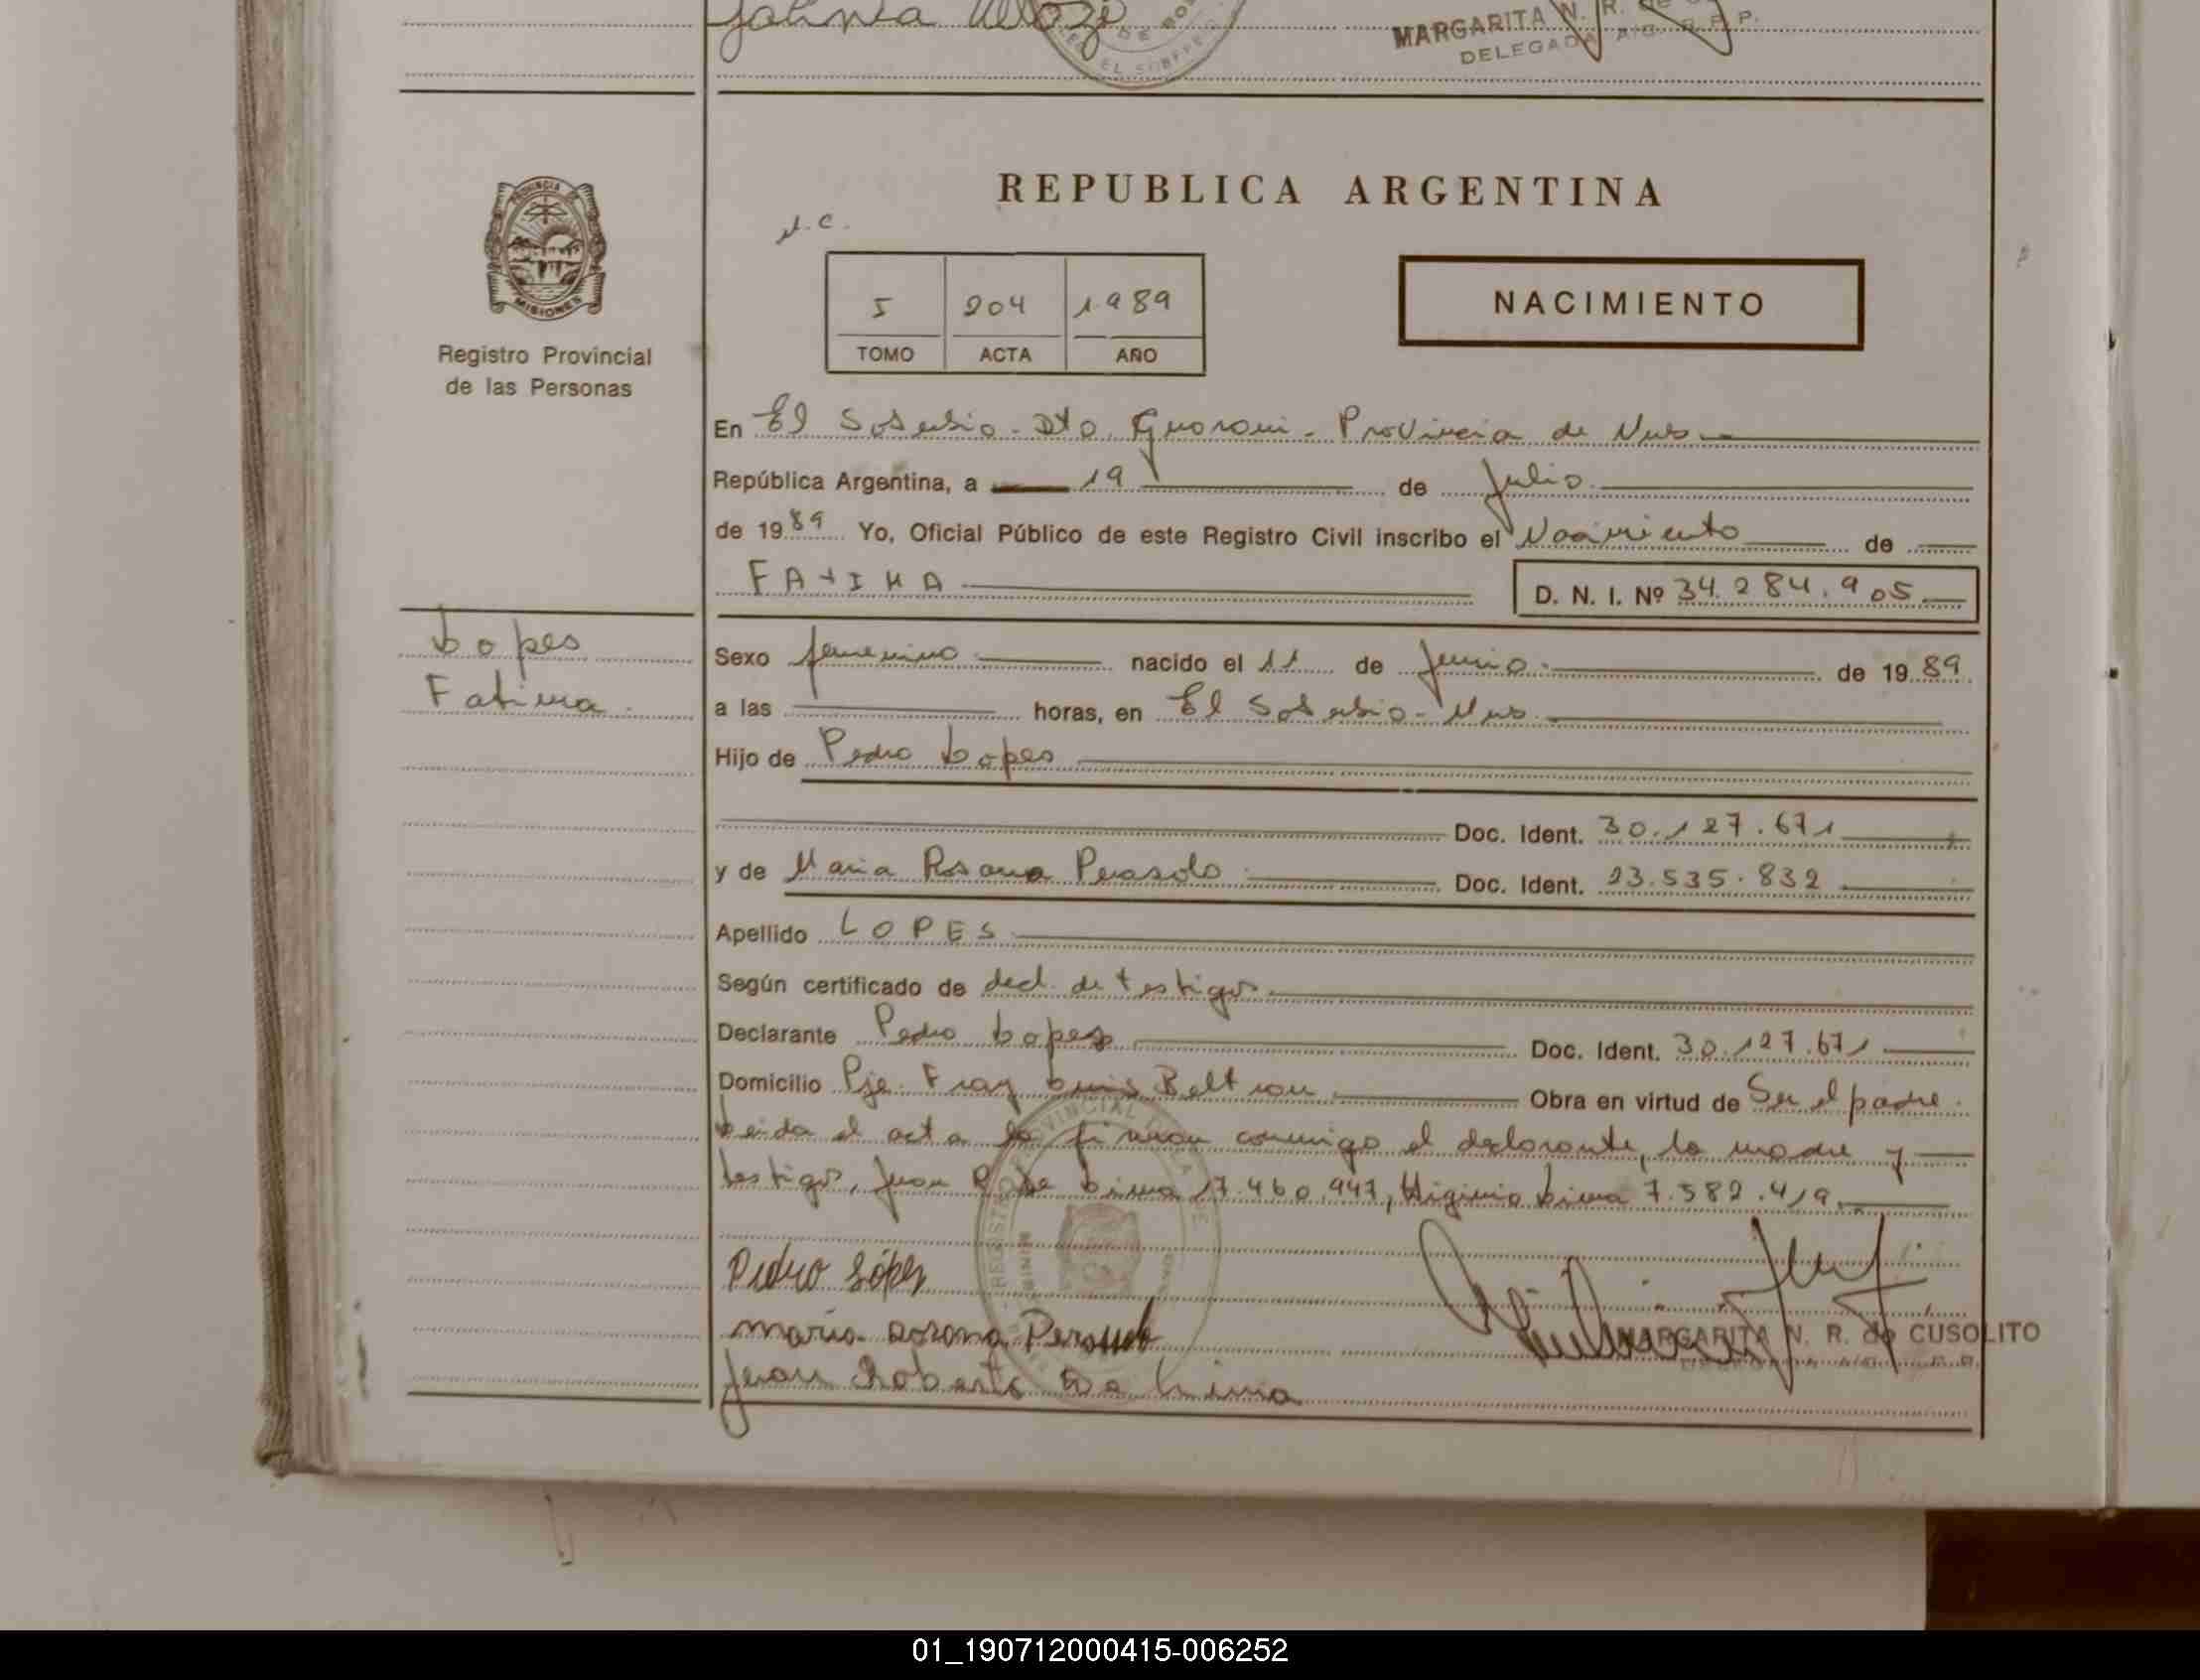 MARGARITA N. R. de
DELEGADA
REPUBLICA ARGENTINA
PROVINCIA DE
MISIONES
Registro Provincial
de las Personas
5 204 1989
TOMO ACTA AÑO
NACIMIENTO
En El Soberbio - Dto. Guarani - Provincia de Mnes
República Argentina, a 19 de Julio
de 1989 Yo, Oficial Público de este Registro Civil inscribo el Nacimiento de
FATIMA D. N. I. Nº 34.284.905
Lopes
Fatima
Sexo femenino nacido el 11 de Junio de 1989
a las horas, en El Soberbio - Mnes
Hijo de Pedro Lopes
Doc. Ident. 30.127.671
y de Maria Rosana Perasolo Doc. Ident. 23.535.832
Apellido LOPES
Según certificado de decl. de testigos
Declarante Pedro Lopes Doc. Ident. 30.127.671
Domicilio Pje. Fray Luis Beltran Obra en virtud de Ser el padre.
Leida el acta la firman conmigo el declarante, la madre y
testigos, Juan Lima 17.460.947, Higinio Lima 7.582.419
Pedro Lópes
maria Rosana
Juan Roberto Da Lima
MARGARITA N. R. de CUSOLITO
01_190712000415-006252